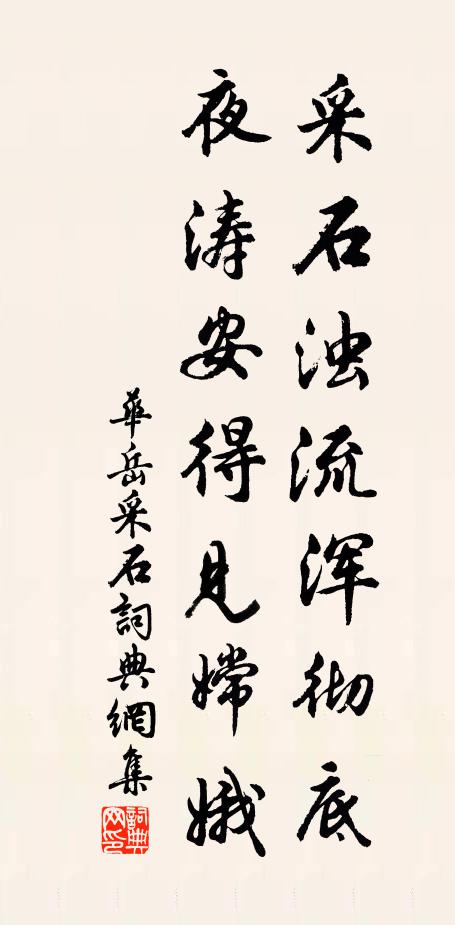 采石浊流浑彻底
夜涛安得见嫦娥
華岳采石詞典網集
詞典网印